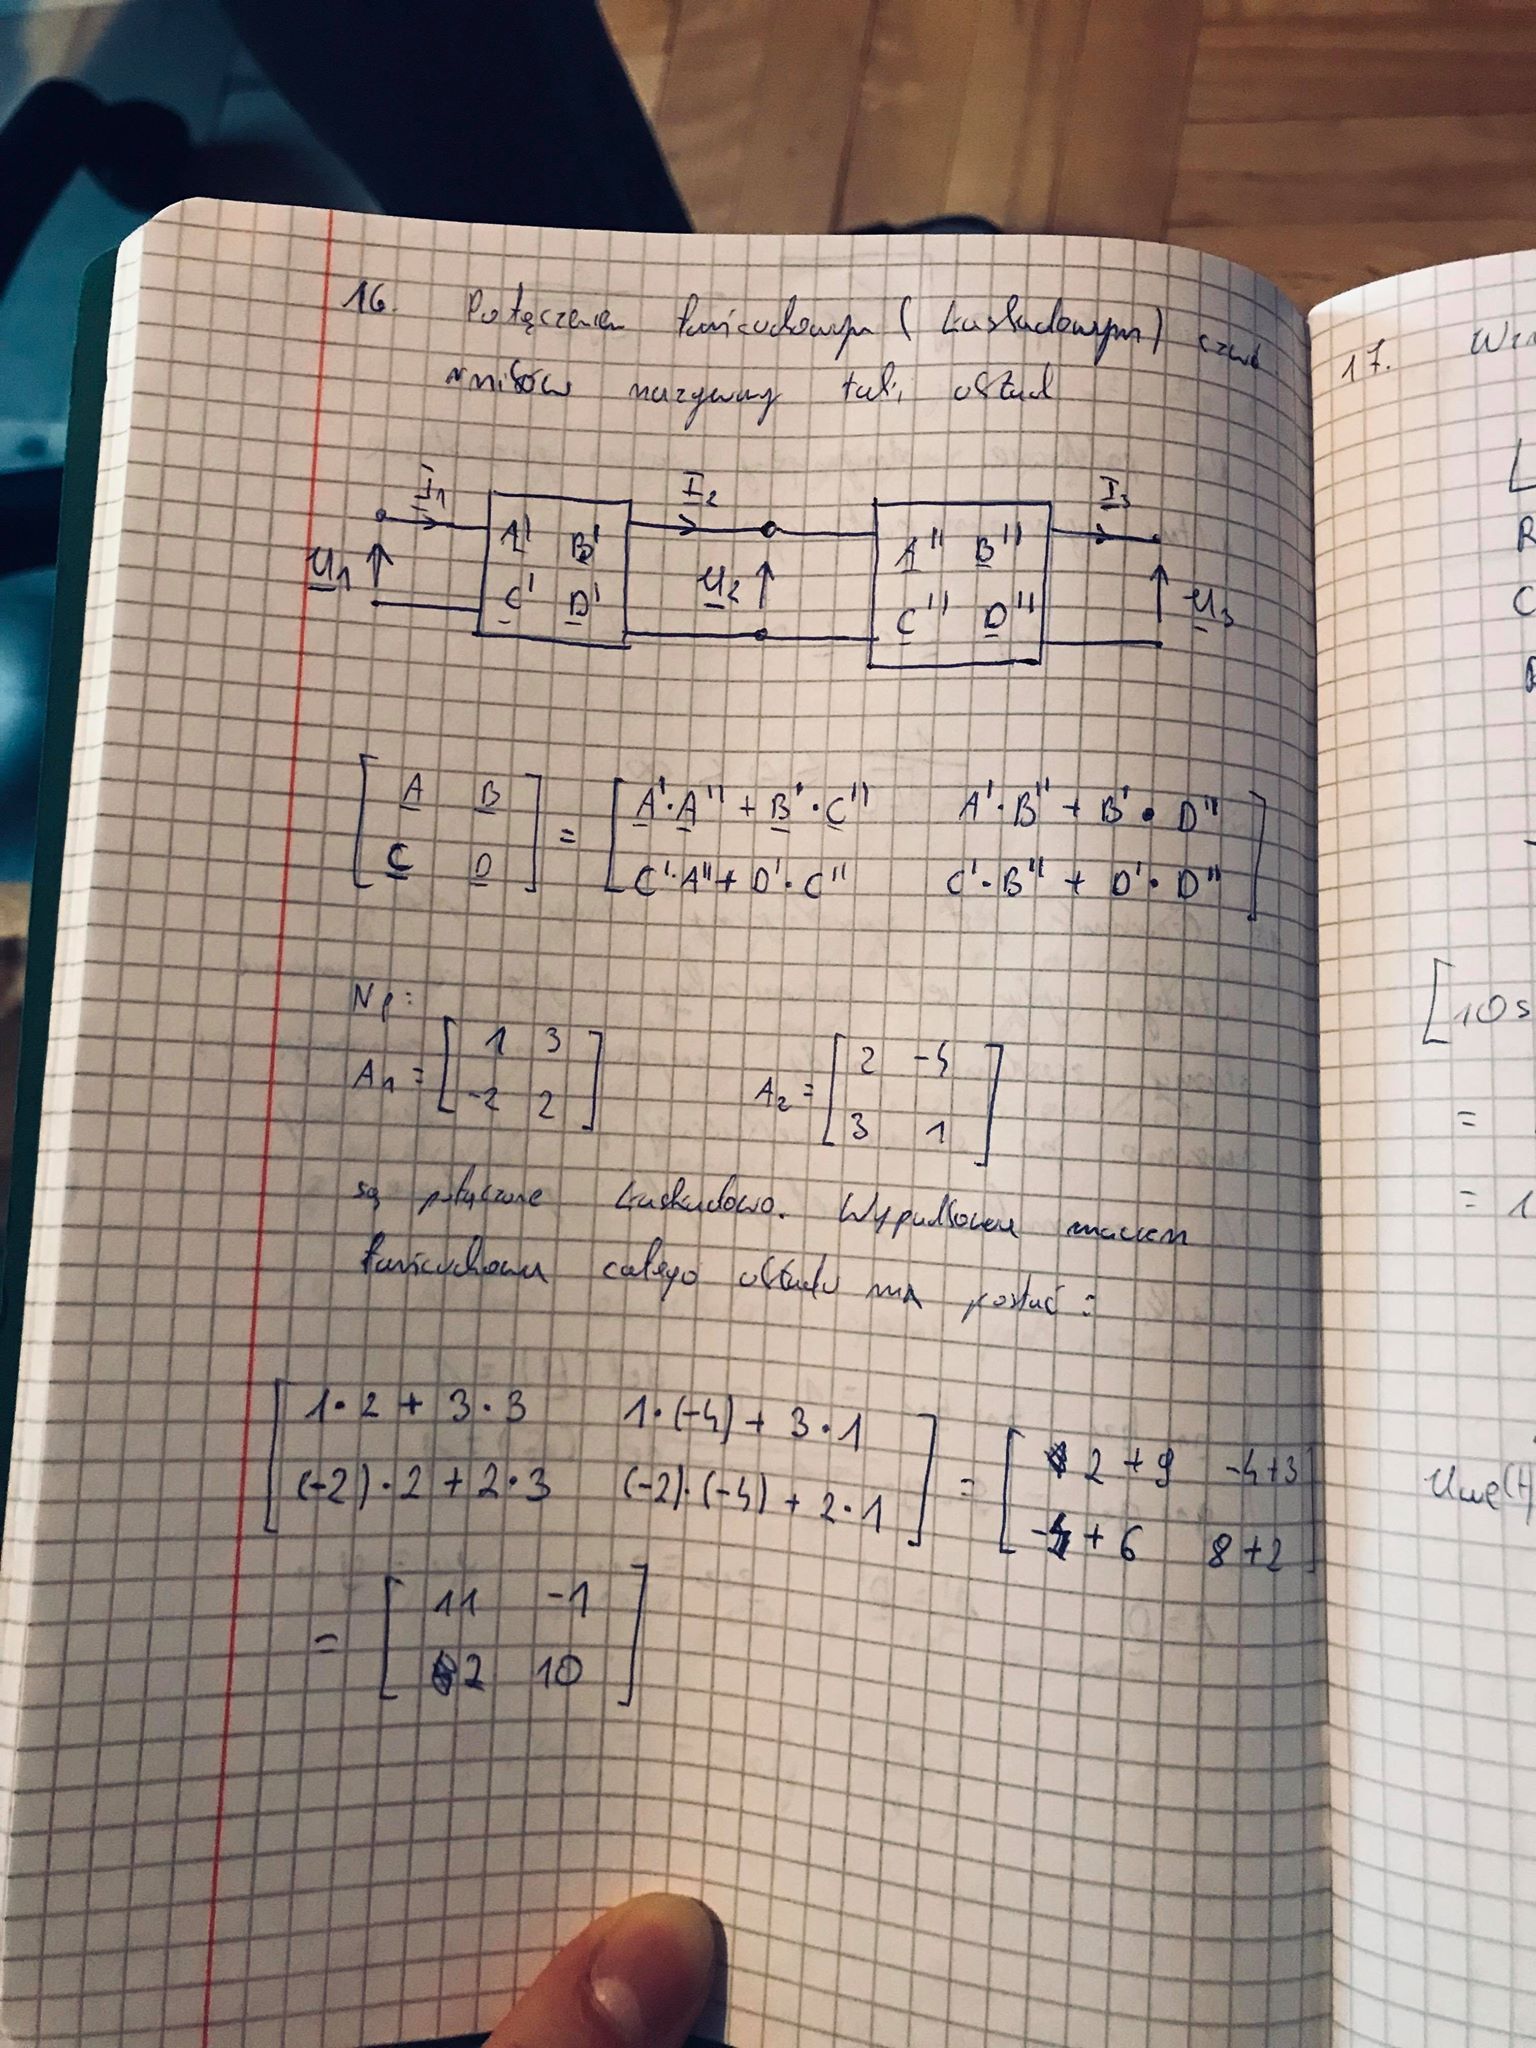 16. Połączeniem łańcuchowym (kaskadowym) czwór
ników nazywamy taki układ
I1 I2 I3
A' B' A'' B''
U1 U2 U3
C' D' C'' D''
[A B; C D] = [A'·A'' + B'·C'' A'·B'' + B'·D''; C'·A'' + D'·C'' C'·B'' + D'·D'']
Np:
A1 = [1 3; -2 2] A2 = [2 -4; 3 1]
są połączone kaskadowo. Wypadkowa macierz
łańcuchowa całego układu ma postać:
[1·2 + 3·3 1·(-4) + 3·1; (-2)·2 + 2·3 (-2)·(-4) + 2·1] = [2+9 -4+3; -4+6 8+2]
= [11 -1; 2 10]
17.
R
C
[10s
=
= 1